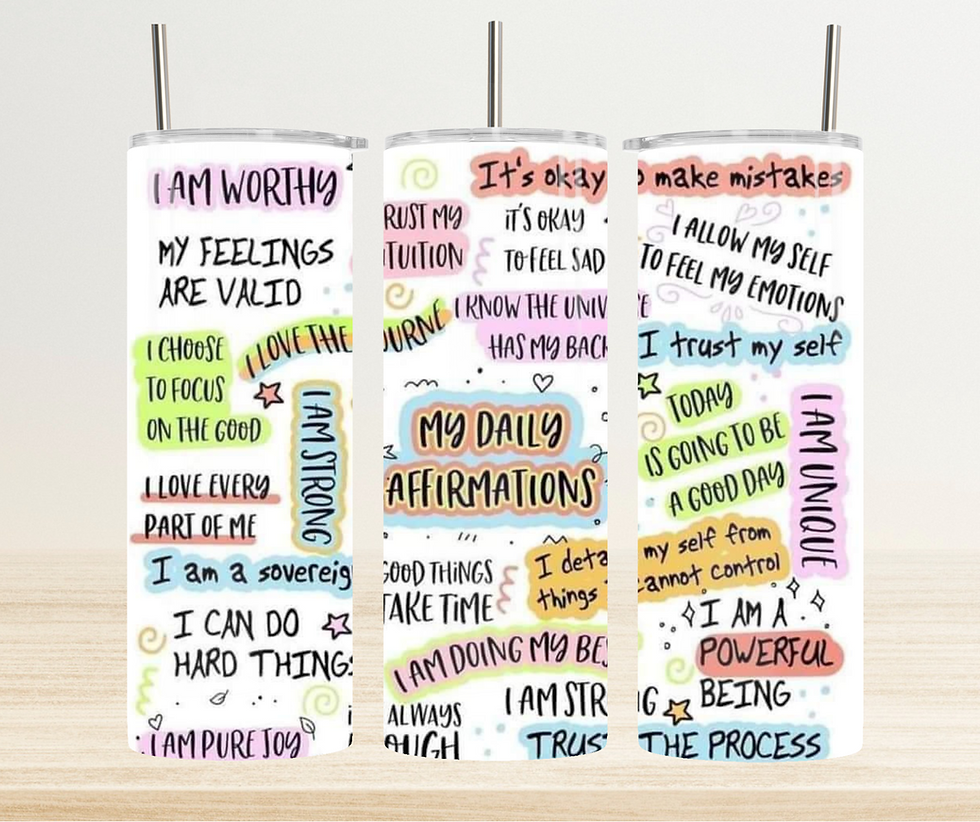 I AM WORTHY
MY FEELINGS
ARE VALID
I CHOOSE
TO FOCUS
ON THE GOOD
I LOVE THE
I AM STRONG
I LOVE EVERY
PART OF ME
I am a sovereig
I CAN DO
HARD THING
I AM PURE JOY
It's okay
RUST MY
TUITION
IT'S OKAY
TO FEEL SAD
I KNOW THE UNIV
HAS MY BACK
OURNE
MY DAILY
AFFIRMATIONS
GOOD THINGS
TAKE TIME
I deta
things
I AM DOING MY BES
I AM STR
ALWAYS
OUGH
TRUST
make mistakes
I ALLOW MY SELF
TO FEEL MY EMOTIONS
E
I trust my self
TODAY
IS GOING TO BE
A GOOD DAY
I AM UNIQUE
my self from
cannot control
I AM A
POWERFUL
BEING
G
THE PROCESS